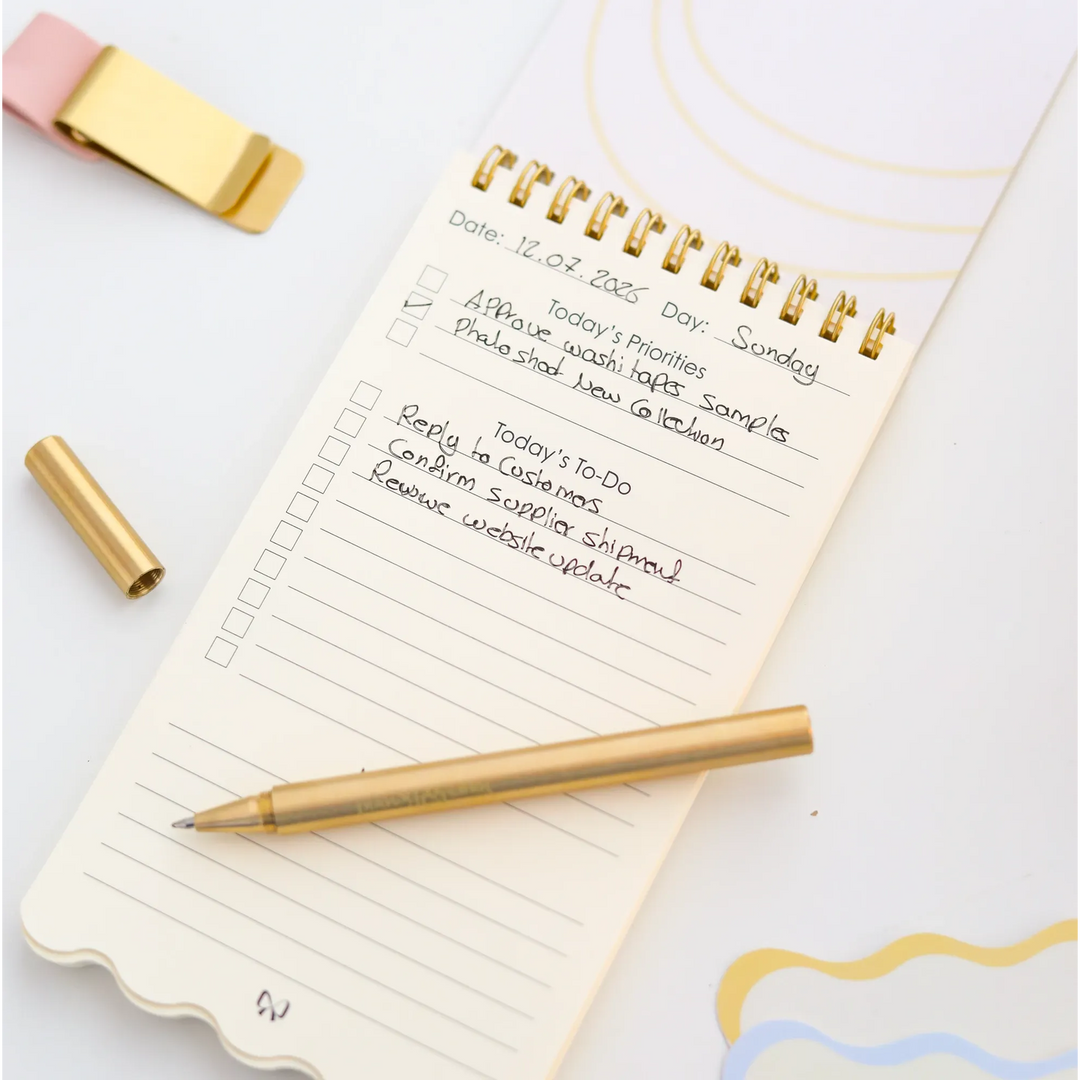 Date: 12.07.2026 Day: Sunday
Today's Priorities
Approve washi tapes samples
Photoshoot New Collection
Today's To-Do
Reply to Customers
Confirm supplier shipment
website update